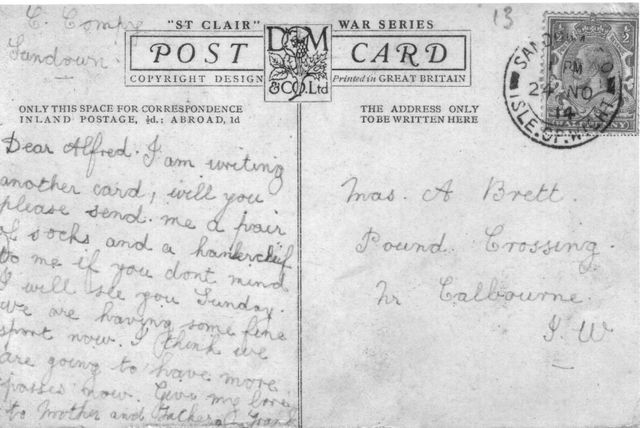 C. Compy
Sandown.
13
"ST CLAIR" WAR SERIES
POST CARD
D M & Co. Ltd
COPYRIGHT DESIGN Printed in GREAT BRITAIN
ONLY THIS SPACE FOR CORRESPONDENCE
INLAND POSTAGE, ½d.; ABROAD, 1d
THE ADDRESS ONLY
TO BE WRITTEN HERE
SANDOWN
PM
24 NO
14
ISLE.OF.WIGHT
Dear Alfred. I am writing
another card, will you
please send me a pair
of socks and a hankercheif
to me if you dont mind
I will see you Sunday.
we are having some fine
sport now. I think we
are going to have more
passes now. Give me love
to Mother and Father
Mas. A Brett.
Pound Crossing.
Nr Calbourne.
I. W